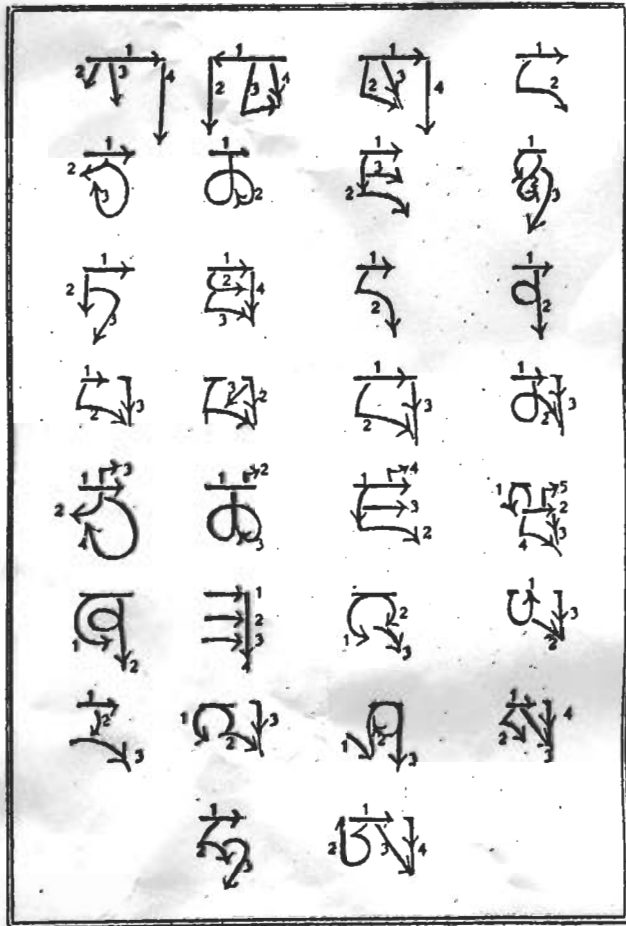 ཀ ཁ ག ང
ཅ ཆ ཇ ཉ
ཏ ཐ ད ན
པ ཕ བ མ
ཙ ཚ ཛ ཝ
ཞ ཟ འ ཡ
ར ལ ཤ ས
ཧ ཨ